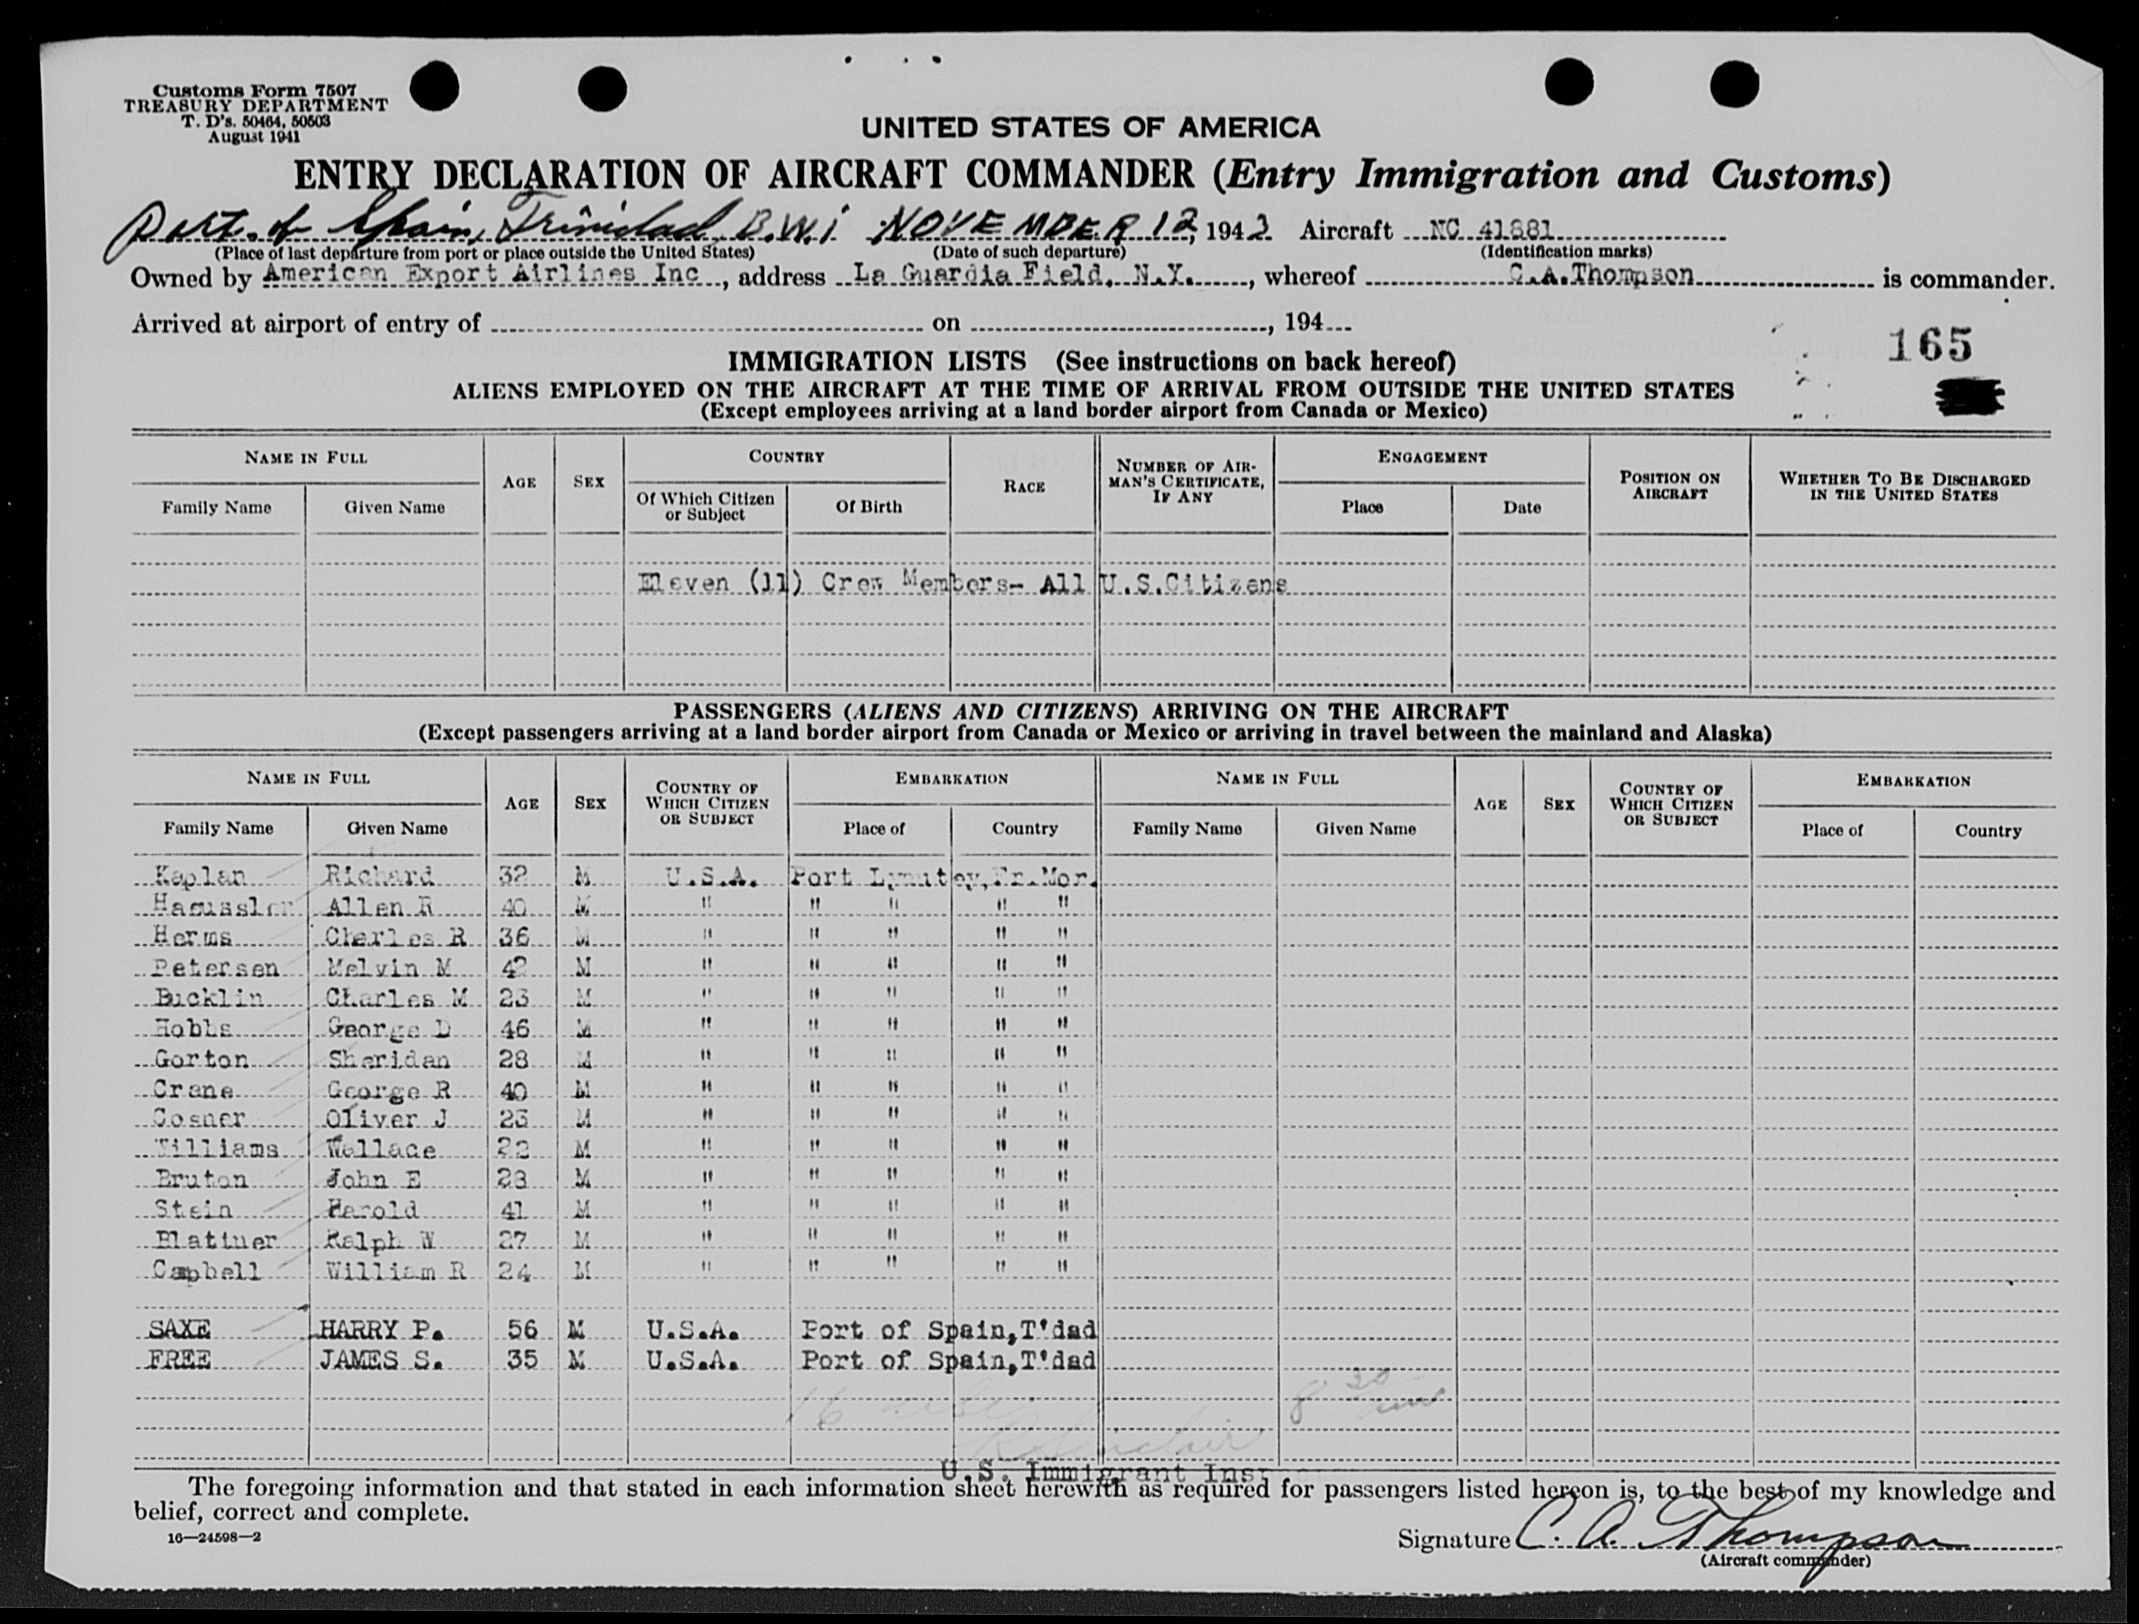 Customs Form 7507
TREASURY DEPARTMENT
T. D's. 50464, 50503
August 1941
UNITED STATES OF AMERICA
ENTRY DECLARATION OF AIRCRAFT COMMANDER (Entry Immigration and Customs)
Port of Spain, Trinidad, B.W.I NOVEMBER 12, 1943 Aircraft NC 41881
(Place of last departure from port or place outside the United States) (Date of such departure) (Identification marks)
Owned by American Export Airlines Inc, address La Guardia Field, N.Y., whereof C.A.Thompson is commander.
Arrived at airport of entry of on , 194
165
IMMIGRATION LISTS (See instructions on back hereof)
ALIENS EMPLOYED ON THE AIRCRAFT AT THE TIME OF ARRIVAL FROM OUTSIDE THE UNITED STATES
(Except employees arriving at a land border airport from Canada or Mexico)
NAME IN FULL AGE SEX COUNTRY RACE NUMBER OF AIRMAN'S CERTIFICATE, IF ANY ENGAGEMENT POSITION ON AIRCRAFT WHETHER TO BE DISCHARGED IN THE UNITED STATES
Family Name Given Name Of Which Citizen or Subject Of Birth Place Date
Eleven (11) Crew Members- All U.S.Citizens
PASSENGERS (ALIENS AND CITIZENS) ARRIVING ON THE AIRCRAFT
(Except passengers arriving at a land border airport from Canada or Mexico or arriving in travel between the mainland and Alaska)
NAME IN FULL AGE SEX COUNTRY OF WHICH CITIZEN OR SUBJECT EMBARKATION NAME IN FULL AGE SEX COUNTRY OF WHICH CITIZEN OR SUBJECT EMBARKATION
Family Name Given Name Place of Country Family Name Given Name Place of Country
Kaplan Richard 32 M U.S.A. Port Lyautey,Fr.Mor.
Haeussler Allen R 40 M " " " " "
Herms Charles R 36 M " " " " "
Petersen Melvin M 42 M " " " " "
Bucklin Charles M 23 M " " " " "
Hobbs George D 46 M " " " " "
Gorton Sheridan 28 M " " " " "
Crane George R 40 M " " " " "
Cosner Oliver J 23 M " " " " "
Williams Wallace 22 M " " " " "
Bruton John E 23 M " " " " "
Stein Harold 41 M " " " " "
Blatiner Ralph W 27 M " " " " "
Campbell William R 24 M " " " " "
SAXE HARRY P. 56 M U.S.A. Port of Spain,T'dad
FREE JAMES S. 35 M U.S.A. Port of Spain,T'dad
16 8 30
U.S. Immigrant Insp
The foregoing information and that stated in each information sheet herewith as required for passengers listed hereon is, to the best of my knowledge and
belief, correct and complete.
16—24598—2
Signature C. A. Thompson
(Aircraft commander)